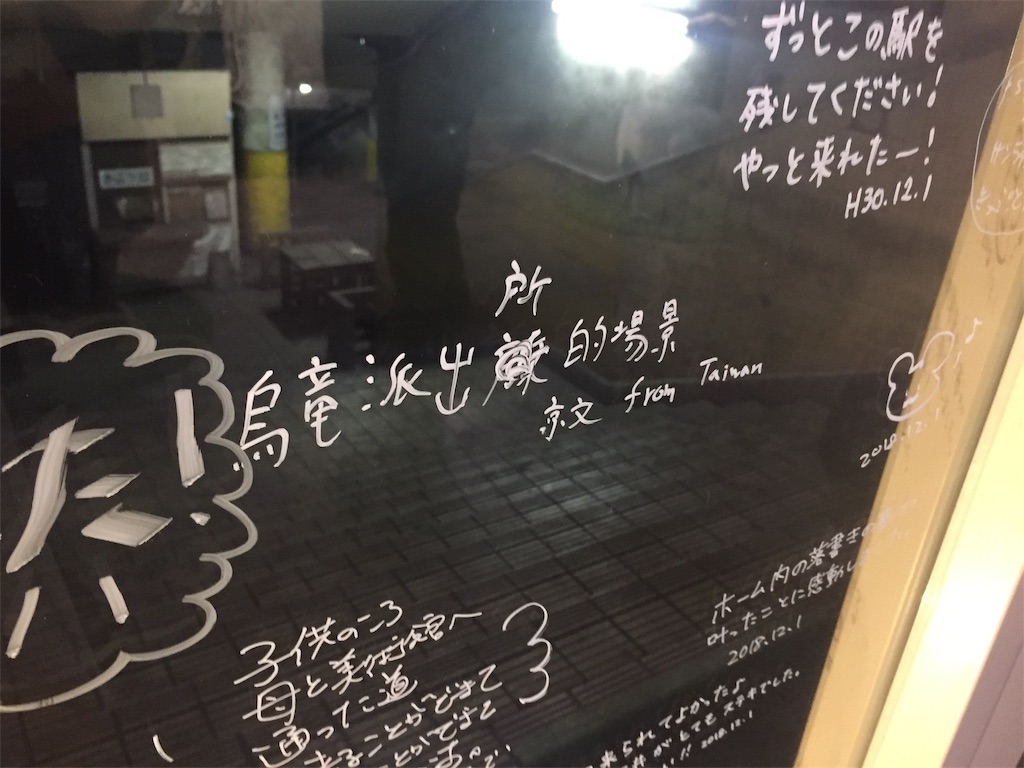 ずっとこの駅を
残してください!
やっと来れたー!
H30.12.1
所
烏竜派出 的場景
京文 from Taiwan
2018.12.1
た!
子供のころ
母と美術館へ
通った道
来ることができて
ホーム内の落書きの
叶ったことに感動し
2018.12.1
来られてよかったよ
がとてもステキでした。
!! 2018.12.1